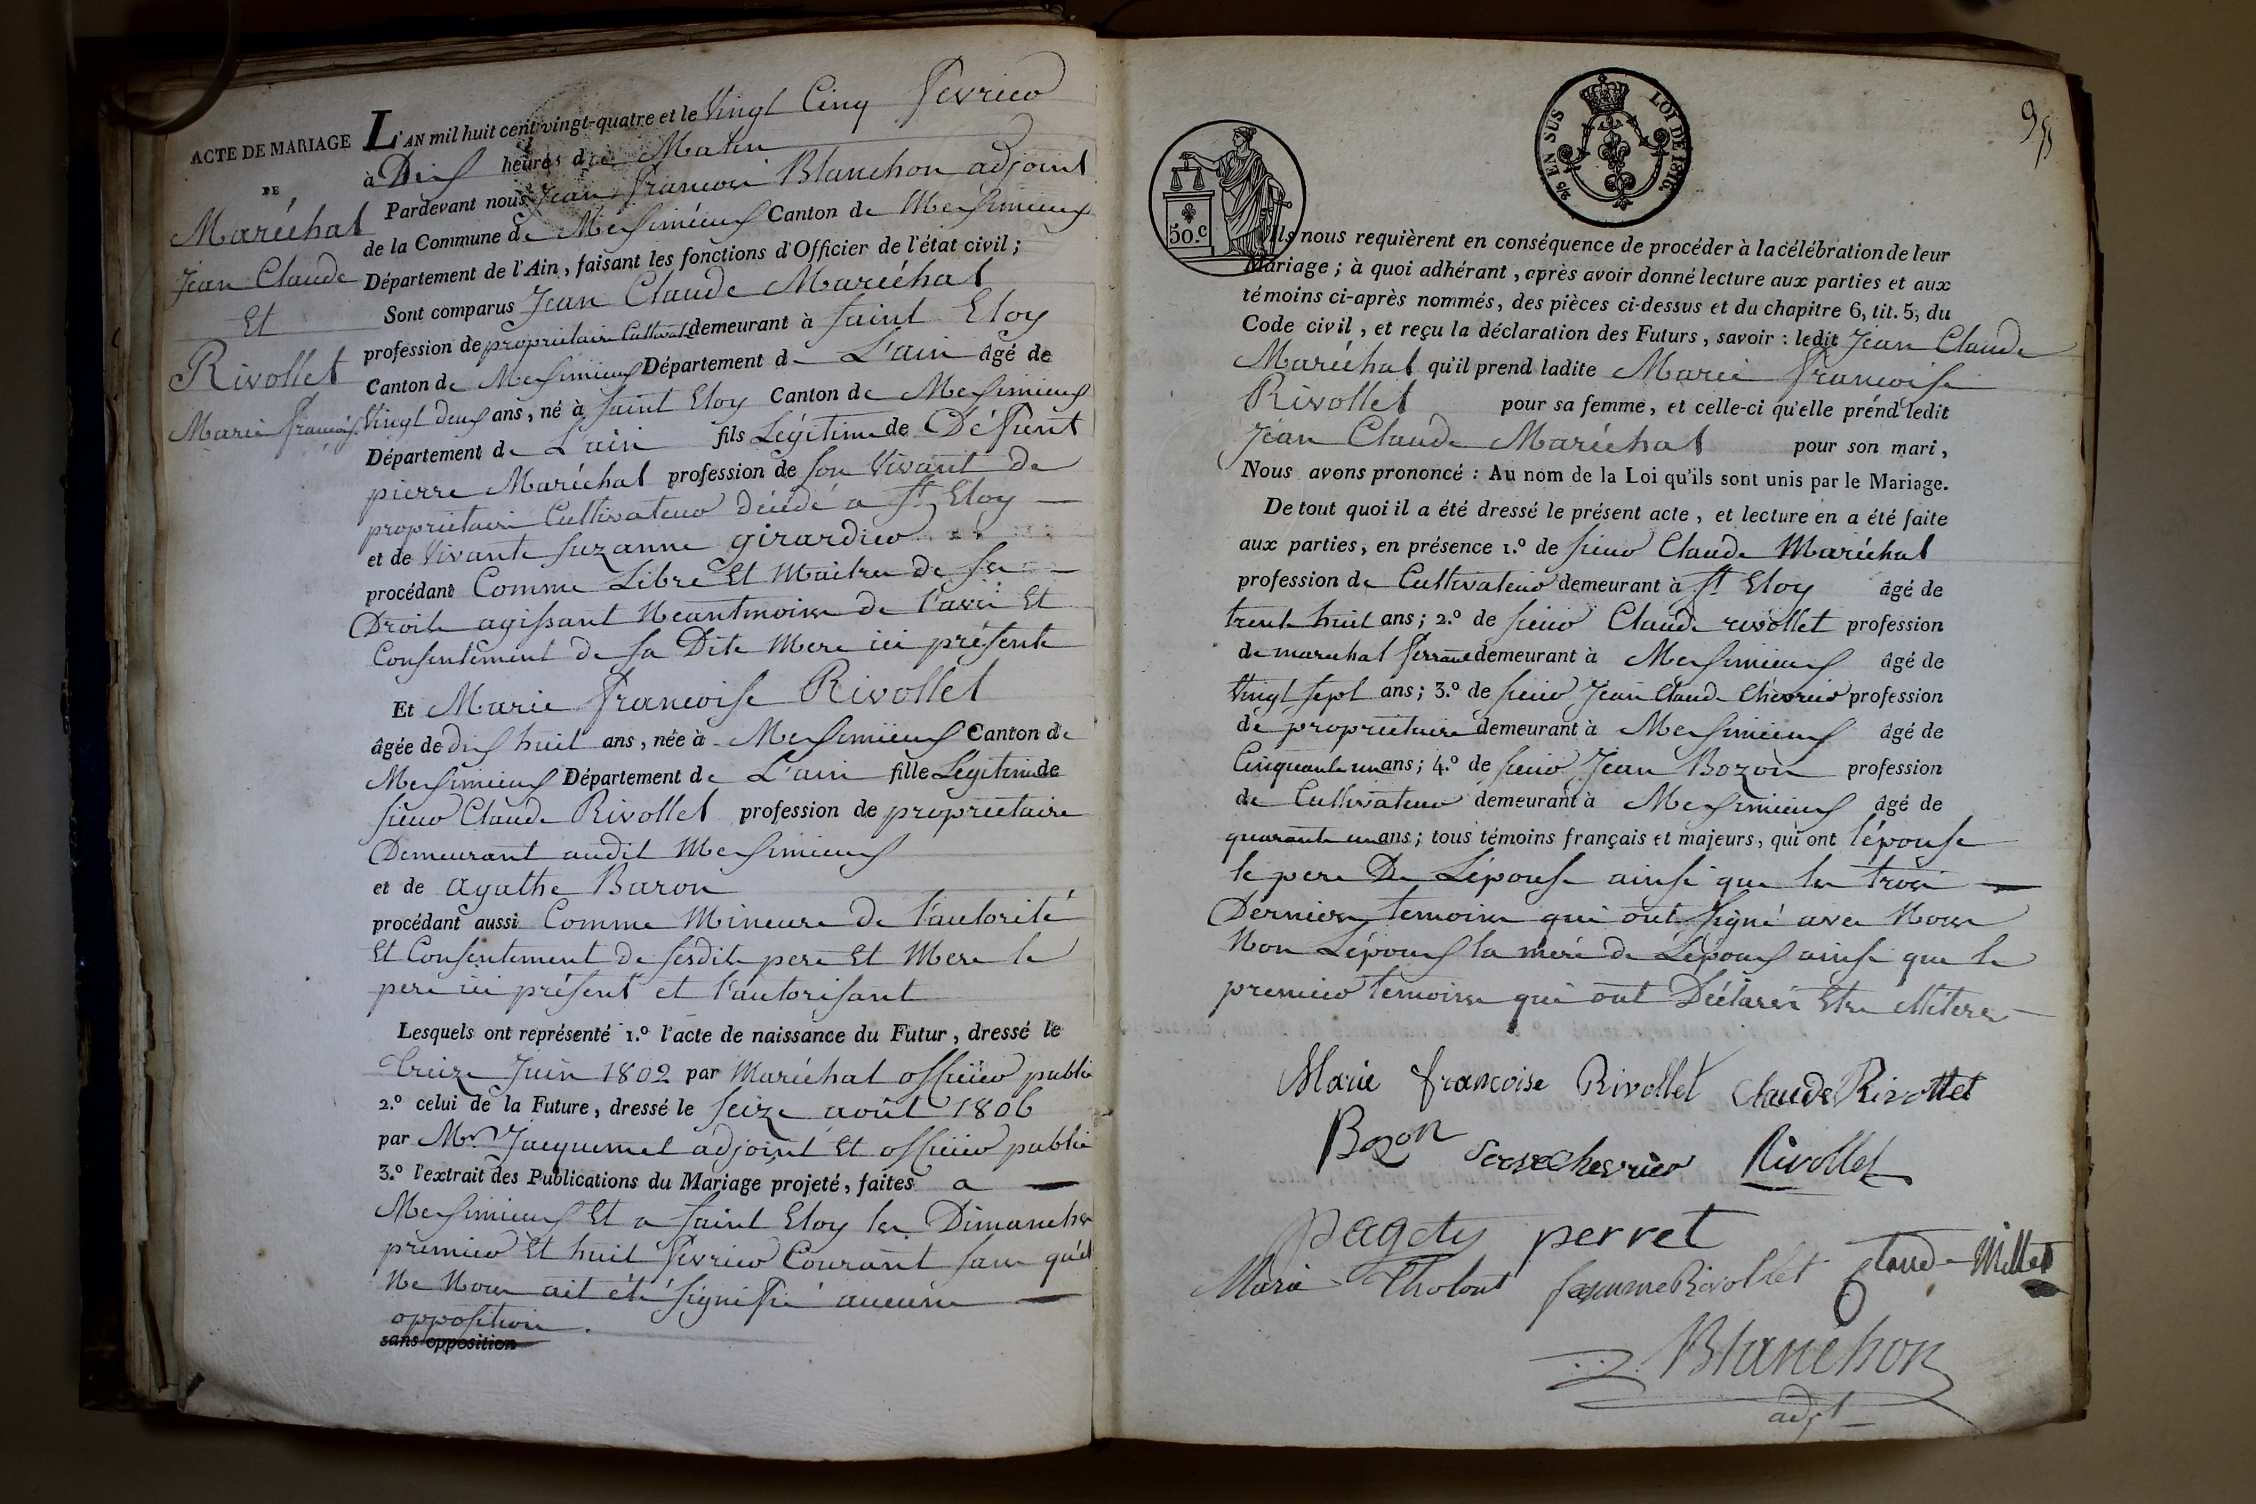 ACTE DE MARIAGE
DE
Maréchal
Jean Claude
Et
Rivollet
Marie françoise
L'AN mil huit cent vingt-quatre et le Vingt Cinq fevrier
à Dix heures du Matin
Pardevant nous Jean françois Blanchon adjoint
de la Commune de Meximieux Canton de Meximieux
Département de l'Ain, faisant les fonctions d'Officier de l'état civil;
Sont comparus Jean Claude Maréchal
profession de propriétaire Cultivat. demeurant à Saint Eloy
Canton de Meximieux Département de L'ain âgé de
Vingt deux ans, né à Saint Eloy Canton de Meximieux
Département de L'ain fils Légitime de Défunt
pierre Maréchal profession de son Vivant de
propriétaire Cultivateur décédé a St Eloy
et de Vivante Suzanne girardier
procédant Comme Libre Et Maitre de ses
Droits agissant Neantmoins de l'avis Et
Consentement de sa Dite Mere ici présente
Et Marie françoise Rivollet
âgée de dix huit ans, née à Meximieux Canton de
Meximieux Département de L'ain fille Légitime de
sieur Claude Rivollet profession de propriétaire
Demeurant audit Meximieux
et de agathe Baron
procédant aussi Comme Mineure de l'autorité
Et Consentement de sesdits pere Et Mere le
pere ici présent et l'autorisant
Lesquels ont représenté 1.º l'acte de naissance du Futur, dressé le
Treize Juin 1802 par Maréchal officier public
2.º celui de la Future, dressé le Seize août 1806
par Mr Jacquemet adjoint Et officier public
3.º l'extrait des Publications du Mariage projeté, faites a
Meximieux Et a Saint Eloy les Dimanches
premier Et huit fevrier Courant sans qu'il
Ne Nous ait été signifié aucune
opposition.
sans opposition
95
50.C
2/5 EN SUS
LOI DE 1816.
Ils nous requièrent en conséquence de procéder à la célébration de leur
Mariage; à quoi adhérant, après avoir donné lecture aux parties et aux
témoins ci-après nommés, des pièces ci-dessus et du chapitre 6, tit. 5, du
Code civil, et reçu la déclaration des Futurs, savoir: ledit Jean Claude
Maréchal qu'il prend ladite Marie françoise
Rivollet pour sa femme, et celle-ci qu'elle prend ledit
Jean Claude Maréchal pour son mari,
Nous avons prononcé: Au nom de la Loi qu'ils sont unis par le Mariage.
De tout quoi il a été dressé le présent acte, et lecture en a été faite
aux parties, en présence 1.º de sieur Claude Maréchal
profession de Cultivateur demeurant à St Eloy âgé de
trente huit ans; 2.º de sieur Claude rivollet profession
de marechal ferrant demeurant à Meximieux âgé de
Vingt sept ans; 3.º de sieur Jean Claude Chevrier profession
de propriétaire demeurant à Meximieux âgé de
Cinquante un ans; 4.º de sieur Jean Bozon profession
de Cultivateur demeurant à Meximieux âgé de
quarante un ans; tous témoins français et majeurs, qui ont l'épouse
le pere De L'épouse ainsi que les trois
Derniers temoins qui ont signé avec Nous
Non L'époux la mere de L'époux ainsi que le
premier temoins qui ont Déclarés Etre illiterés
Marie françoise Rivollet Claude Rivollet
Bozon Chevrier Rivollet
pagety perret
Marie Tholont femme Rivollet Claude Millet
Blanchon
adjt